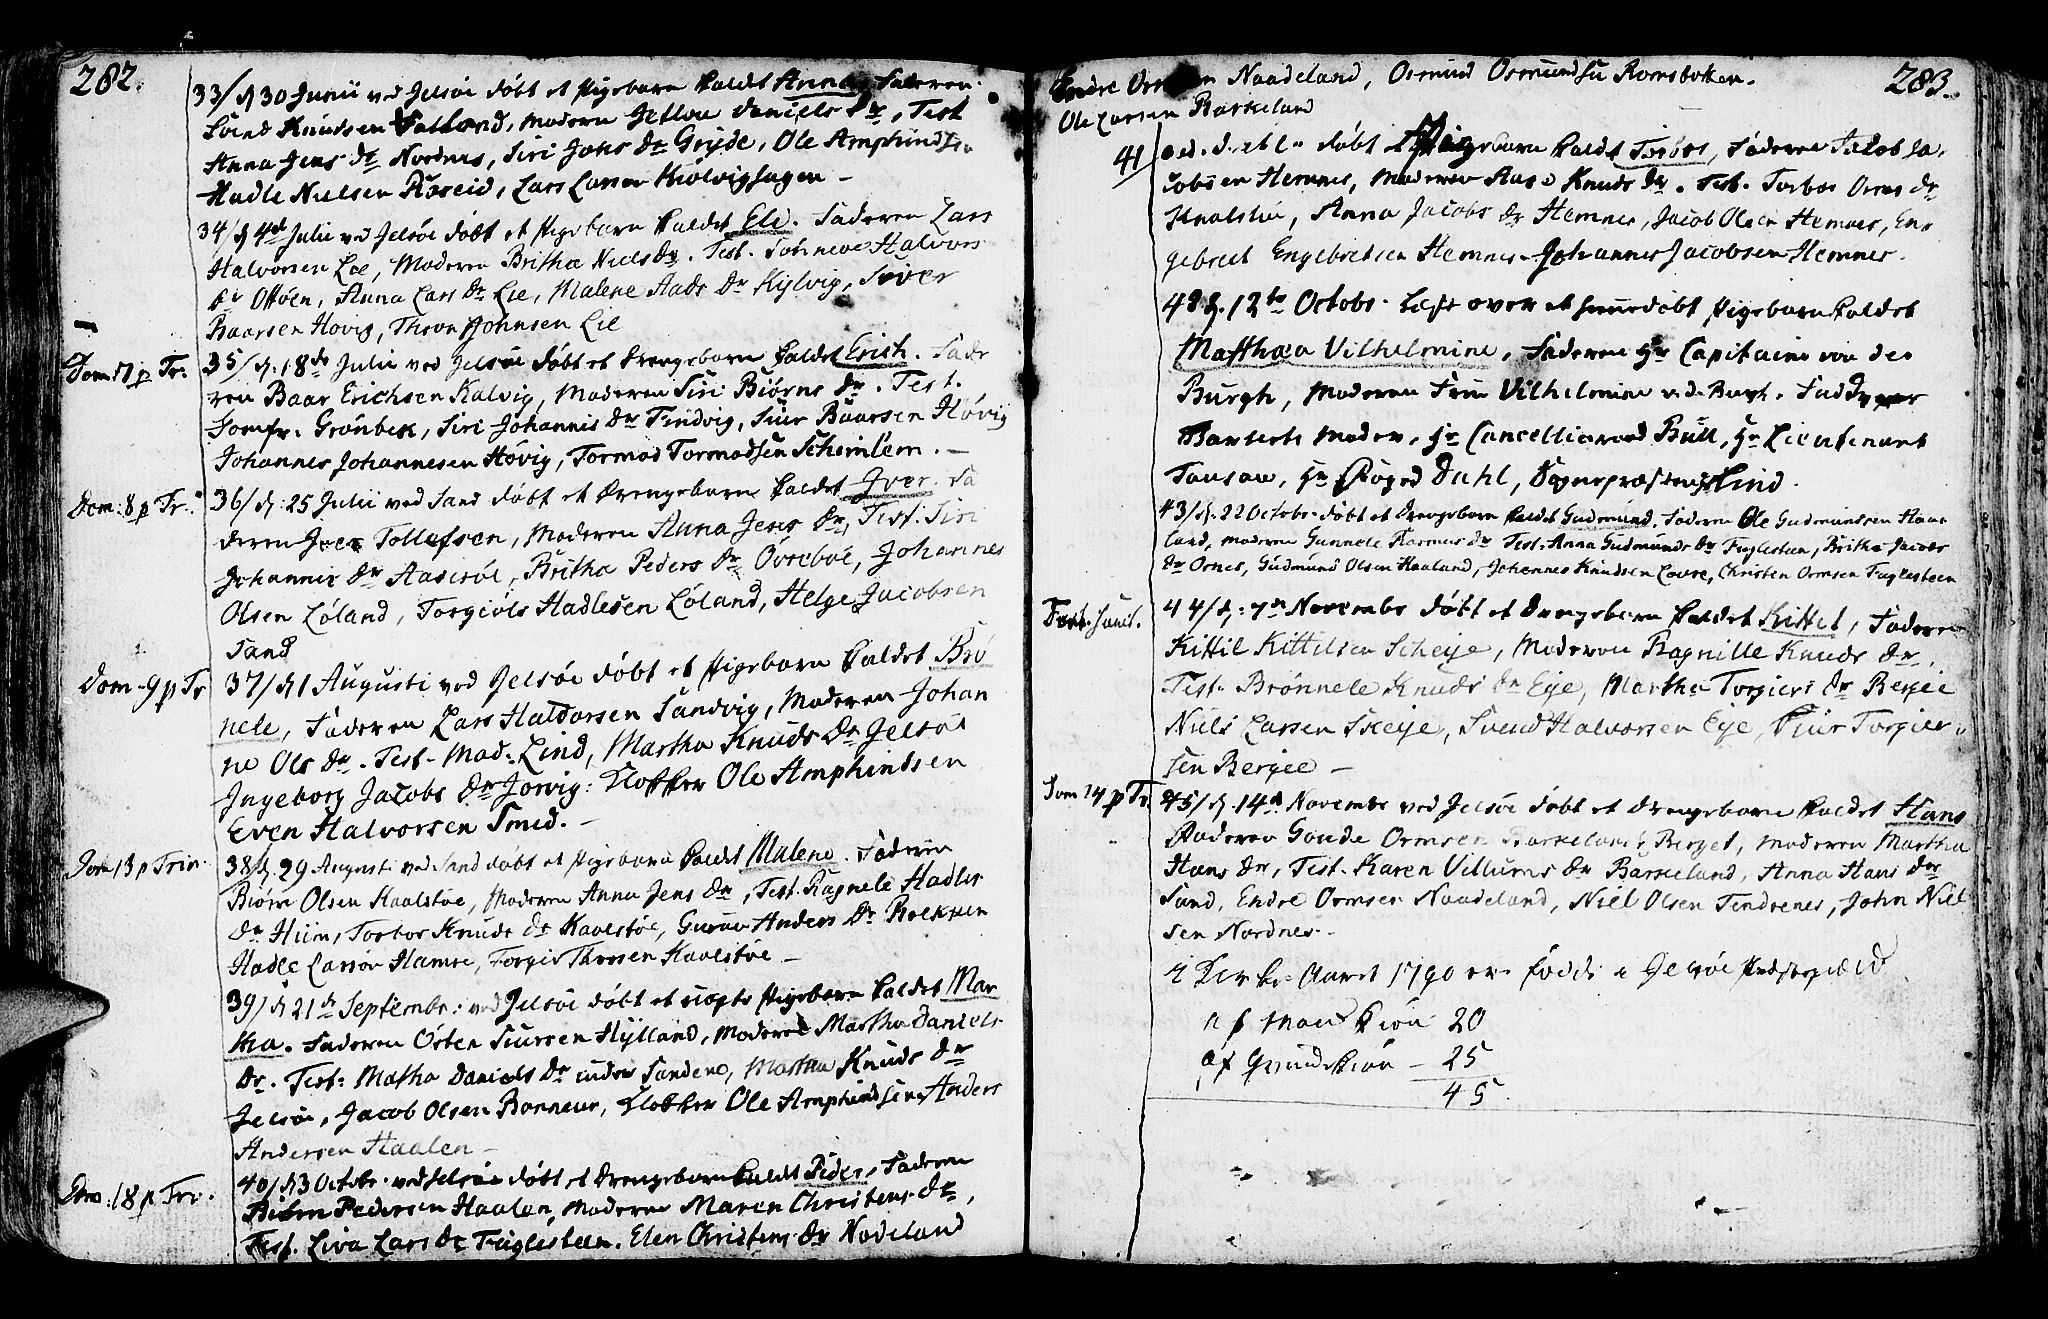 282.
33/ d 30 Junii ved Jelsøe døbt et Pigebarn kaldet Anna, Faderen
Svend Knudsen Vatland, Moderen Jetlou Daniels Dr, Test
Anna Jens Dr Nordnes, Siri Johs Dr Gryde, Ole Amphindsen
Hadle Nielsen Aareid, Lars Larsen Kiolvighagen –
34/ d 4de Julii ved Jelsøe døbt et Pigebarn kaldet Eli. Faderen Lars
Halvorsen Lie, Moderen Britha Niels Dr. Test. Sønneve Halvors
Dr Ottøen, Anna Lars Dr Lie, Malene Aads Dr Kylvig, Siver
Baarsen Hovig, Thron Johnsen Lie
Dom 7 p Tr.
35/ d. 18de Julii ved Jelsøe døbt et Drengebarn kaldet Erich. Fade
ren Baar Erichsen Kalvig, Moderen Siri Biørns Dr. Test.
Jomfr. Grønbek, Siri Johannis Dr Tindvig, Siur Baarsen Høvig
Johannes Johannesen Høvig, Tormod Tormodsen Schimlem. –
Dom: 8 p Tr.
36/ d: 25 Julii ved Sand døbt et Drengebarn kaldet Iver. Fa
deren Iver Tollefsen, Moderen Anna Jens Dr, Test. Siri
Johannis Dr Aaserøe, Britha Peders Dr Øvrebøe, Johannes
Olsen Løland, Torgiøls Hadlesen Løland, Helge Jacobsen
Sand
Dom. 9 p Tr
37/ d 1 Augusti ved Jelsøe døbt et Pigebarn kaldet Brø
nele, Faderen Lars Haldorsen Sandvig, Moderen Johan
ne Ols Dr. Test. Mad. Lind, Martha Knuds Dr Jelsøe
Ingeborg Jacobs Dr Jorvig: Klokker Ole Amphindsen
Even Halvorsen Smed. –
Dom 13 p Trin.
38/ d. 29 Augusti ved Sand døbt et Pigebarn kaldet Malene. Faderen
Biørn Olsen Kaalstøe, Moderen Anna Jens Dr, Test. Ragnele Hadles
Dr Hiim, Torbor Knuds Dr Kaalstøe, Guroe Anders Dr Roekken
Hadle Larsen Hamre, Torgier Thorsen Kaalstøe –
39/ d 21de Septembr: ved Jelsøe døbt et uægte Pigebarn kaldet Mar
tha. Faderen Østen Siursen Hylland, Moderen Martha Daniels
Dr. Test: Matha Daniels Dr indre Sandene, Martha Knuds Dr
Jelsøe, Jacob Olsen Bonneur, Klokker Ole Amphindsen, Anders
Andersen Haalen –
Dom. 18 p Trr.
40/ d 3 Octobr. ved Jelsøe døbt et Drengebarn kaldet Peder, Faderen
Biørn Pedersen Haalen, Moderen Maren Christens Dr,
Test. Liva Lars Dr Fuglesteen. Elen Christens Dr Nodeland
283.
Endre Ormsen Naadeland, Osmund Osmundsen Ramsbotten.
Ole Larsen Barkeland
41 døbt et Pigebarn kaldet Torbor, Faderen Jacob Ja.
cobsen Hemnes, Moderen Aase Knuds Dr. Test. Torbor Orms Dr
Knalstøe, Anna Jacobs Dr Hemnes, Jacob Olsen Hemnes, En.
gebret Engebretsen Hemnes Johannes Jacobsen Hemnes.
42 d. 12te Octobr. Læst over et hiemedøbt Pigebarn kaldet
Matthæa Vilhelmine, Faderen Hr Capitaine von der
Burgh, Moderen Frue Vilhelmine v.d. Burgh. Fadder
Barnets Moder, Hr Cancellieraad Bull, Hr Lieutenant
Tausan, Hr Foged Dahl, Sognepræsten Lind.
43/ d. 22 Octobr. døbt et Drengebarn kaldet Gudmund. Faderen Ole Gudmundsen Haa
land, Moderen Gunnele Rasmus Dr Test. Anna Gudmunds Dr Fuglesteen, Britha Jacobs
Dr Ornes, Gudmund Olsen Haaland, Johannes Knudsen Lovre, Christen Ormsen Fuglesteen
Fest. Sanct.
44/ d: 7de Novembr døbt et Drengebarn kaldet Kittel, Faderen
Kittil Kittilsen Scheije, Moderen Ragnille Knuds Dr.
Test. Brønnele Knuds Dr Eije, Martha Torgiers Dr Bergee
Niels Larsen Skeije, Svend Halvorsen Eije, Siur Torgier.
sen Bergee –
Dom 24 p Tr.
45/ d. 14de Novembr ved Jelsøe døbt et Drengebarn kaldet Hans
Faderen Gonde Ormsen Barkeland Berget, Moderen Martha
Hans Dr, Test. Karen Villums Dr Barkeland, Anna Hans Dr
Sand, Endre Ormsen Naadeland, Niel Olsen Tendrenes, John Niel
sen Nordnes.
i Kirke-Aaret 1790 ere fødde i Jelsøe Præstegield
af Mandkiøn 20
af Qvindekiøn – 25
45